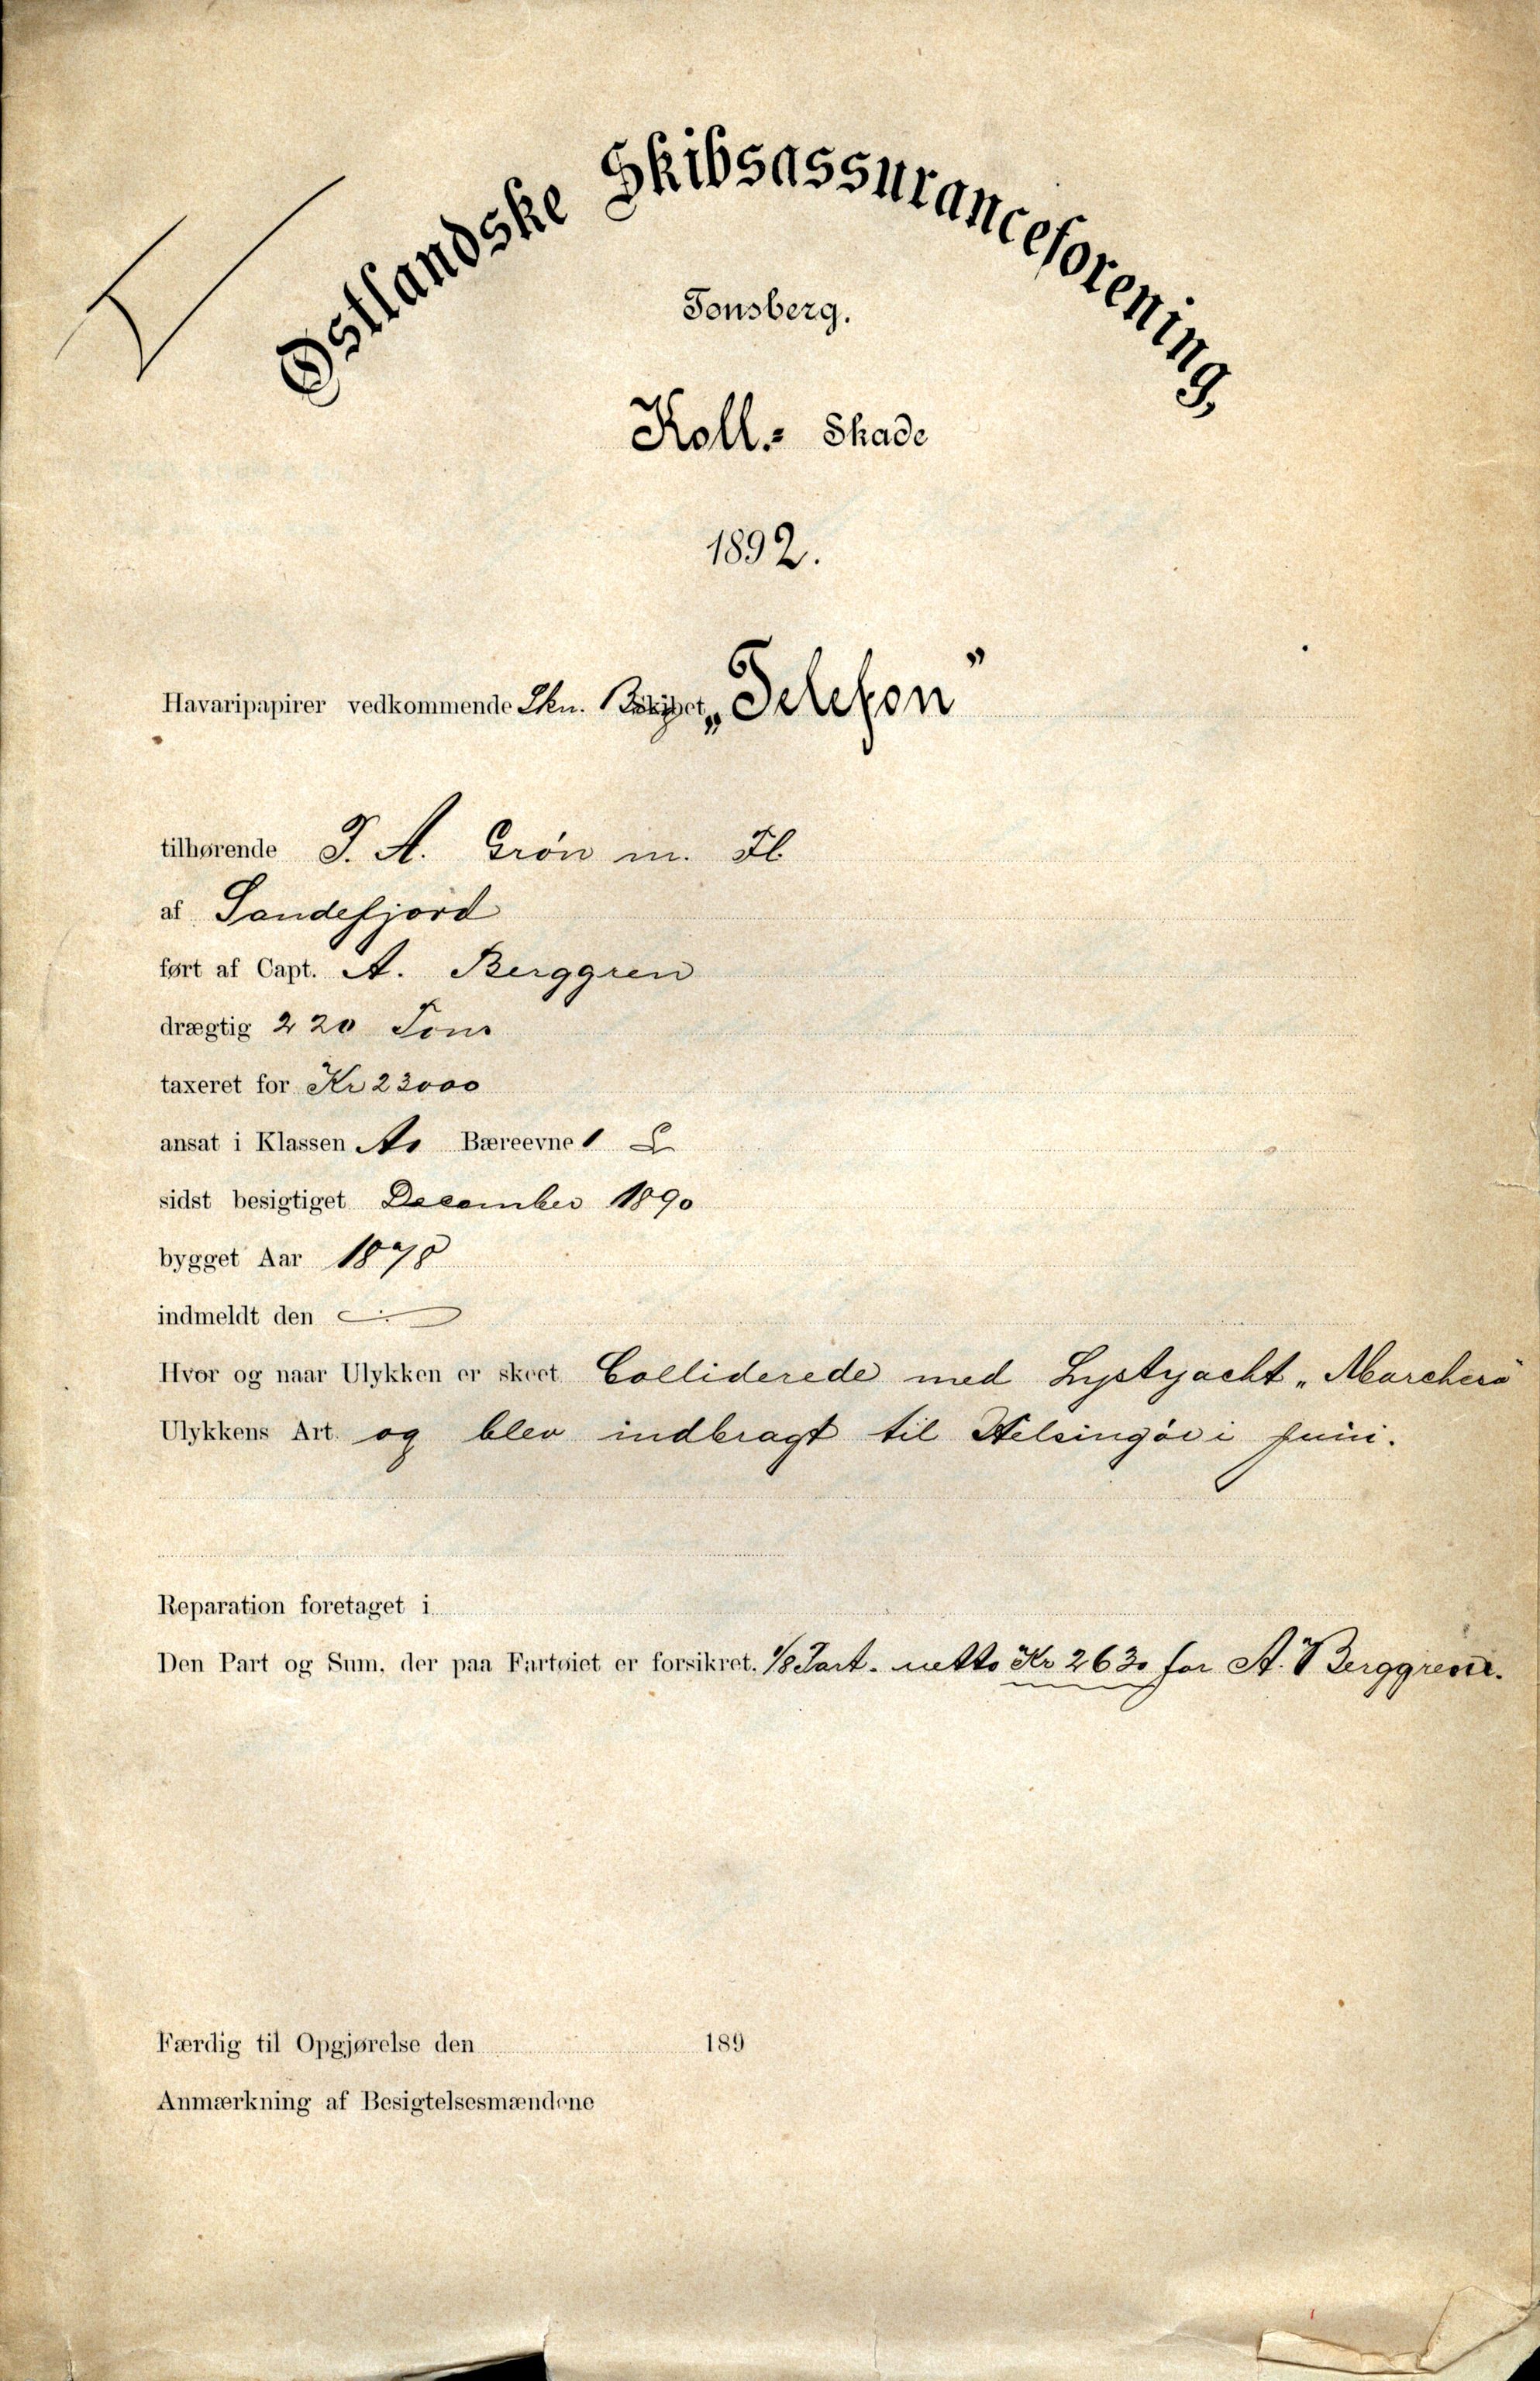 Østlandske Skibsassuranceforening,
Tonsberg.
Koll.- Skade
1892.
Havaripapirer vedkommende Skn. „Telefon”
tilhørende J. A. Grön m. Fl
af Sandefjord
ført af Capt. A. Berggren
drægtig 220 Tons
taxeret for Kr 23000
ansat i Klassen A1 Bæreevne 1 L
sidst besigtiget December 1890
bygget Aar 1878
indmeldt den
Hvor og naar Ulykken er skeet Colliderede med Lystyacht „
Ulykkens Art og blev indbragt til Helsingör i Juni.
Reparation foretaget i
Den Part og Sum, der paa Fartøiet er forsikret, 1/8 Part. netto Kr 2630 for A. Berggren.
Færdig til Opgjørelse den 189
Anmærkning af Besigtelsesmændene